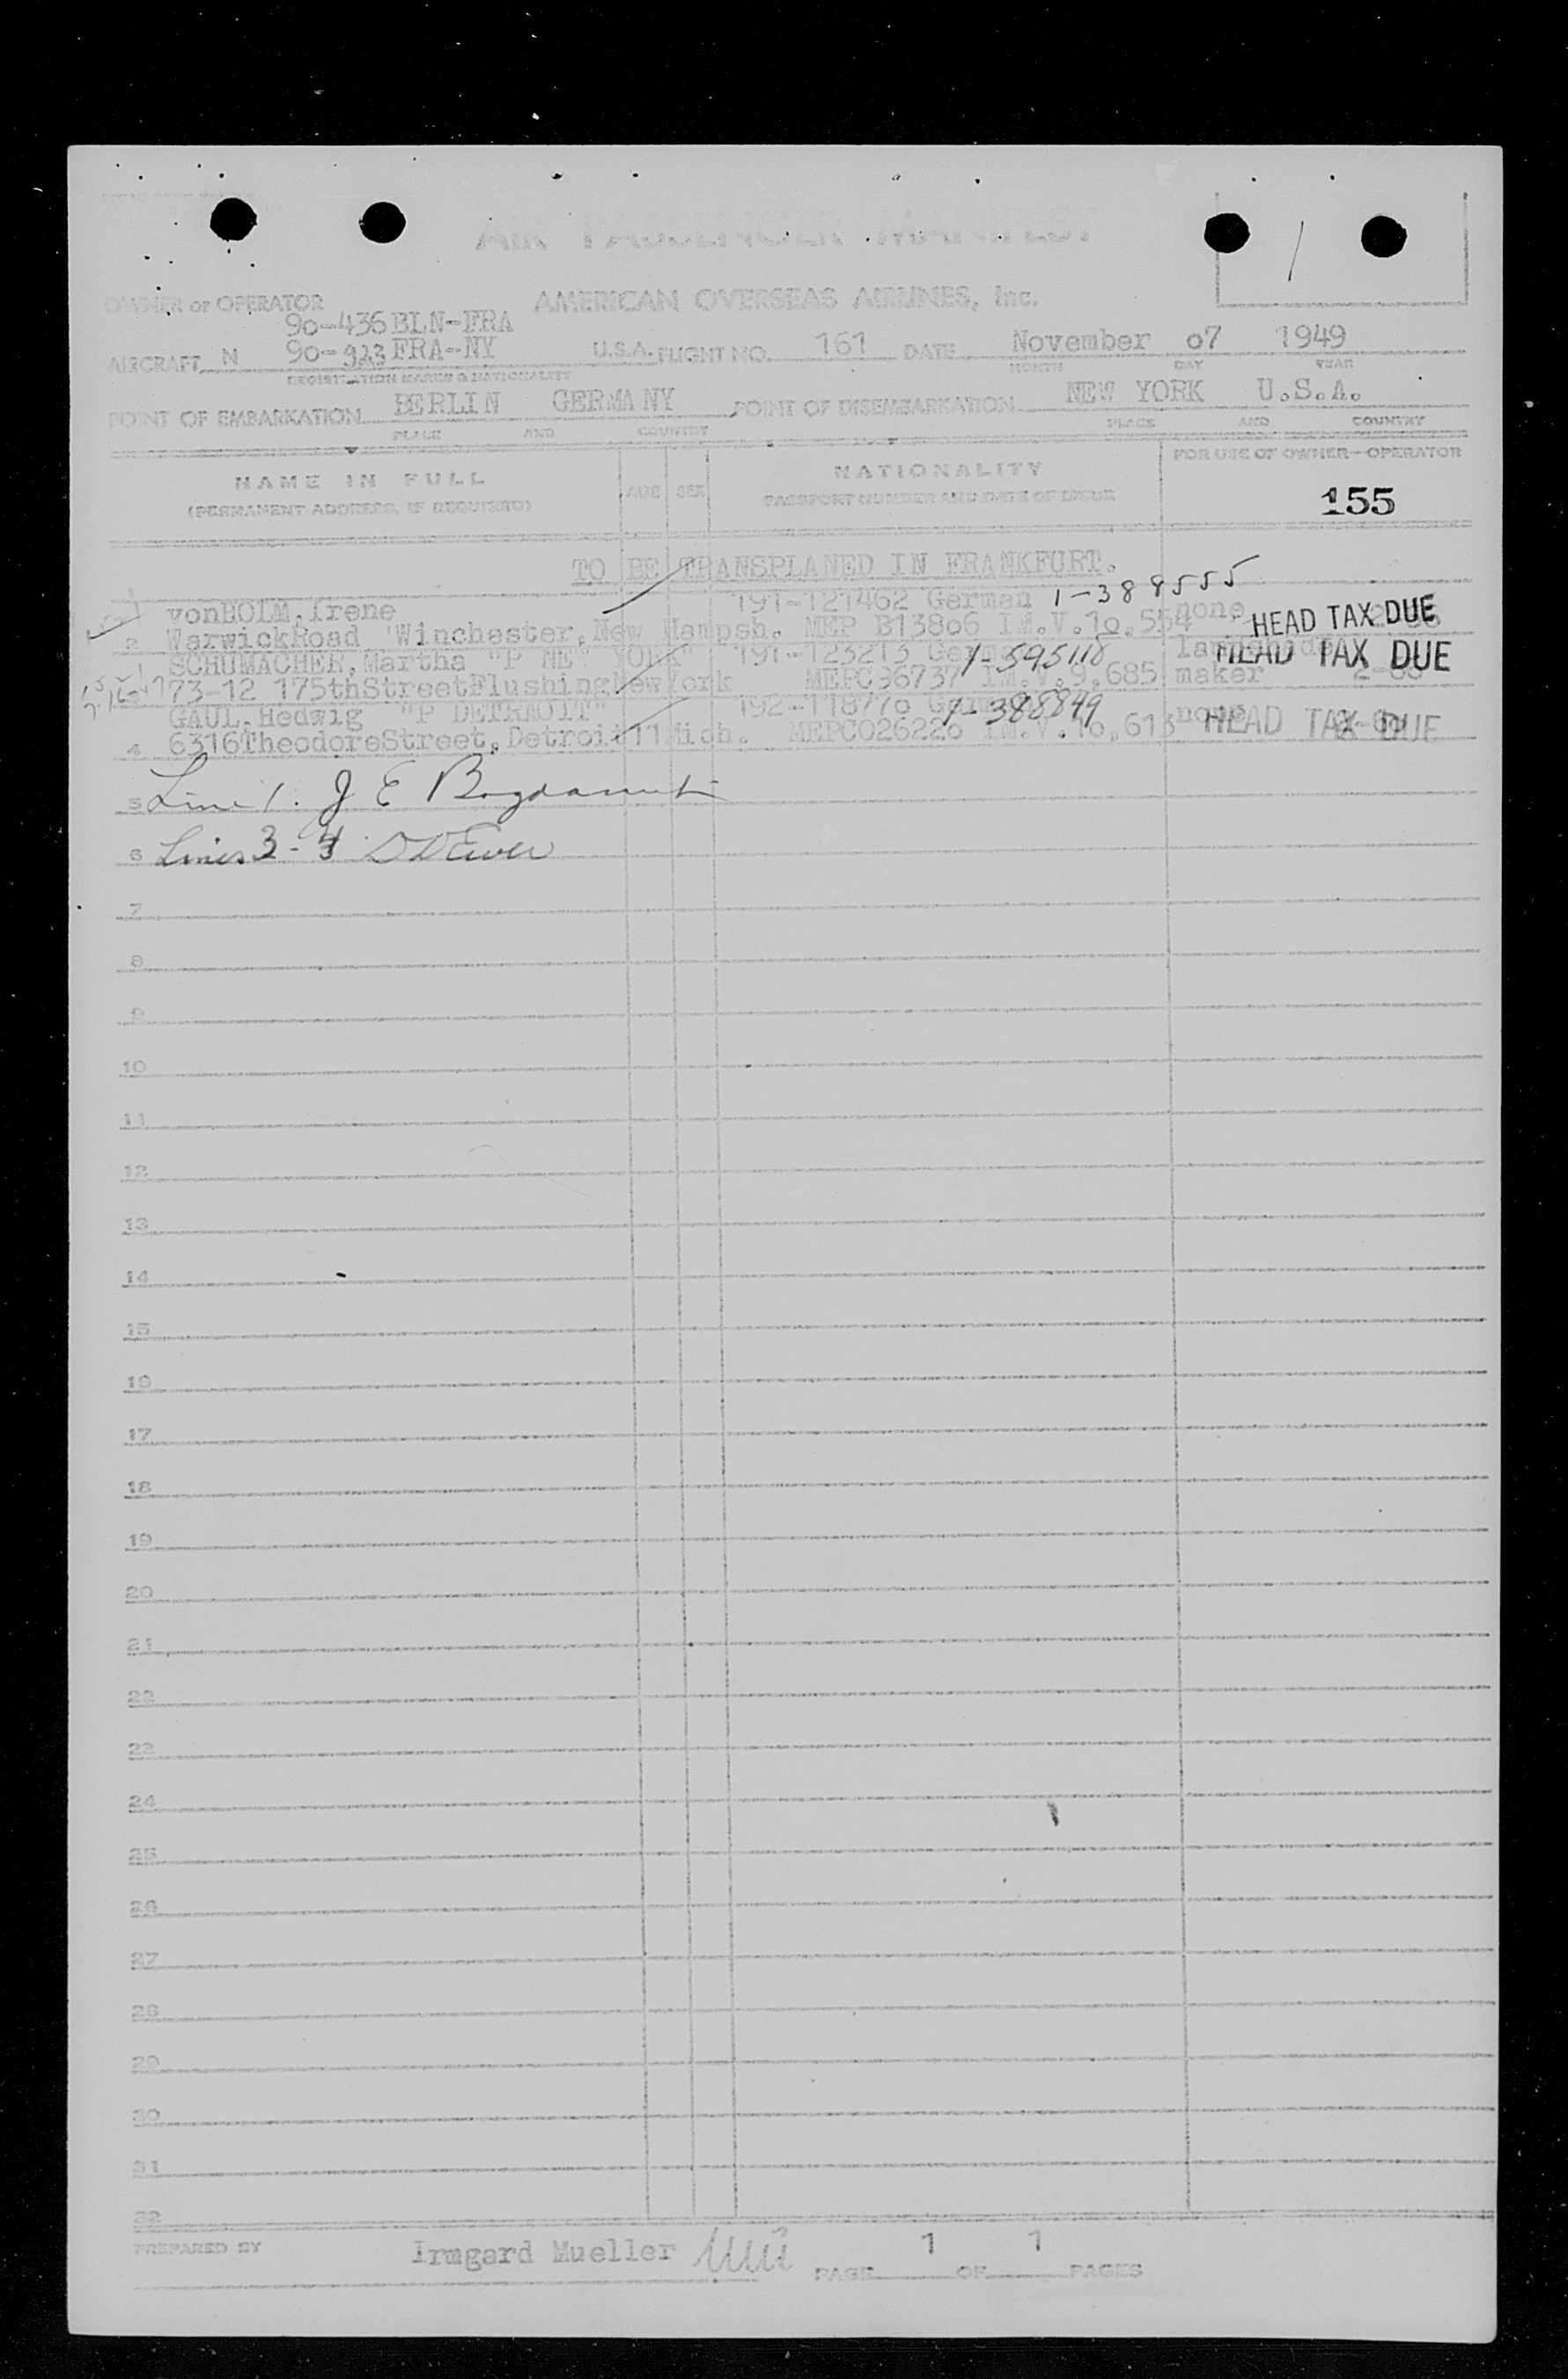 AIR PASSENGER MANIFEST
/
OWNER or OPERATOR AMERICAN OVERSEAS AIRLINES, Inc.
90-436 BLN-FRA
AIRCRAFT N 90-923 FRA-NY U.S.A. FLIGHT NO. 161 DATE November 07 1949
REGISTRATION MARKS & NATIONALITY MONTH DAY YEAR
POINT OF EMBARKATION BERLIN GERMANY POINT OF DISEMBARKATION NEW YORK U.S.A.
PLACE AND COUNTRY PLACE AND COUNTRY
NAME IN FULL AGE SEX NATIONALITY FOR USE OF OWNER-OPERATOR
(PERMANENT ADDRESS, IF REQUIRED) PASSPORT NUMBER AND DATE OF ISSUE 155
TO BE TRANSPLANED IN FRANKFURT.
1 vonHOLM, Irene 191-121462 German 1-388555 none HEAD TAX DUE
2 WarwickRoad Winchester, New Hampsh. MEP B13806 IM.V.10,554
SCHUMACHER, Martha "P NEW YORK" 191-123213 1-595118 HEAD TAX DUE
73-12 175thStreetFlushingNewYork MEPC96737 IM.V.9,685 maker
GAUL, Hedwig "P DETRAOIT" 192-118770 1-388849 none HEAD TAX DUE
4 6316TheodoreStreet, Detroit11Mich. MEPC026220 IM.V.10,613
5 Line 1. J E
6 Lines 3-4
7
8
9
10
11
12
13
14
15
16
17
18
19
20
21
22
23
24
25
26
27
28
29
30
31
32
PREPARED BY Irmgard Mueller PAGE 1 OF 1 PAGES